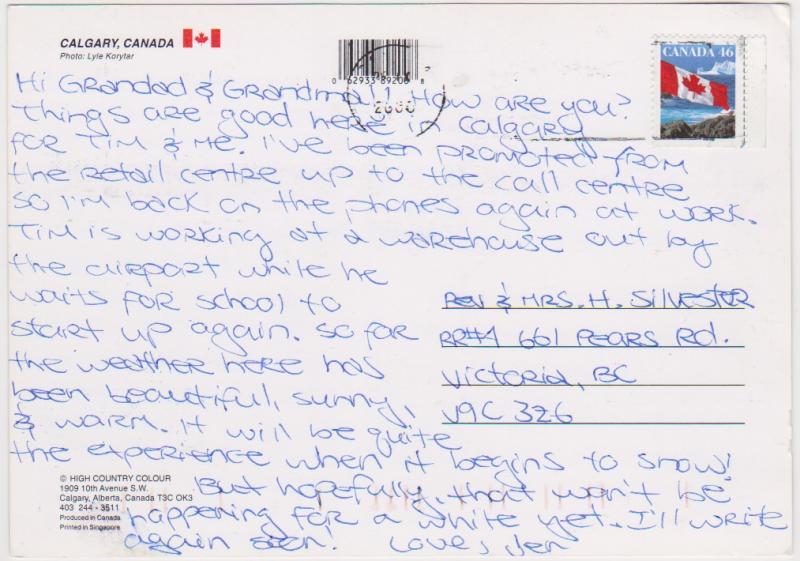 CALGARY, CANADA
Photo: Lyle Korytar
0 62933 89206 8
2000
CANADA 46
Hi Grandad & Grandma!! How are you?
Things are good here in Calgary
for Tim & me. I've been promoted from
the retail centre up to the call centre
so I'm back on the phones again at work.
Tim is working at a warehouse out by
the airport while he
waits for school to
start up again. So far
the weather here has
been beautiful, sunny,
& warm. It will be quite
the experience when it begins to snow!
But hopefully, that won't be
happening for a white yet. I'll write
again soon! Love, Jen
Rev & Mrs. H. Silvester
RR#4 661 Pears Rd.
Victoria, BC
V9C 3Z6
© HIGH COUNTRY COLOUR
1909 10th Avenue S.W.
Calgary, Alberta, Canada T3C OK3
403 244 - 3511
Produced in Canada
Printed in Singapore